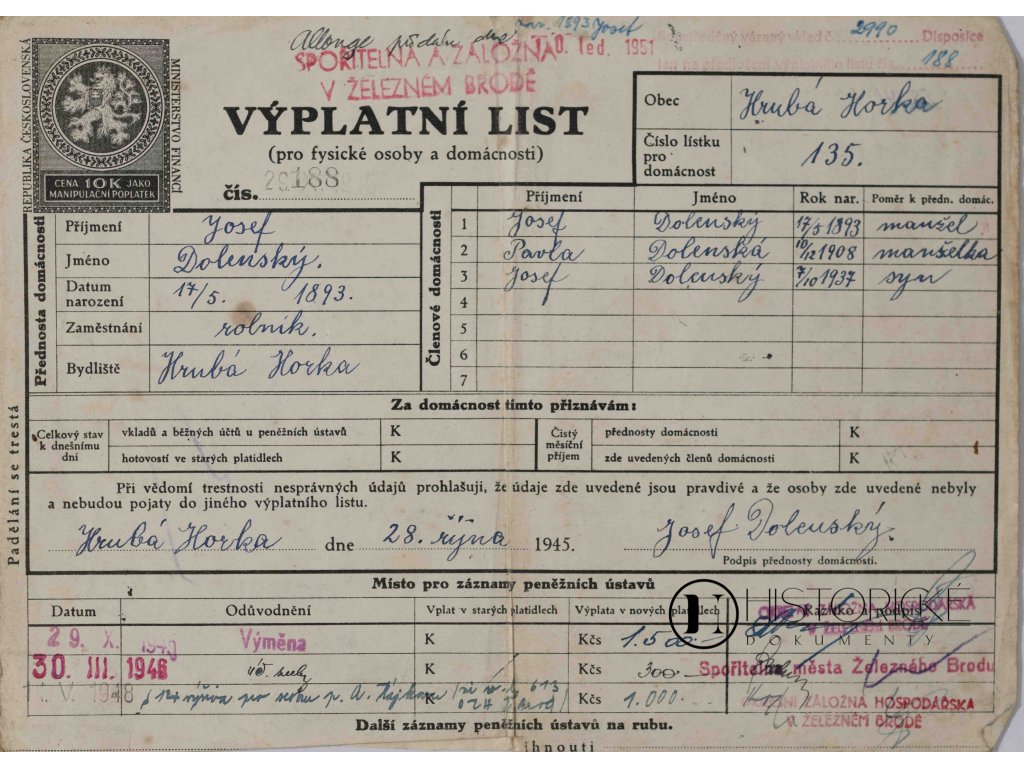 Allonge přidán dne
nar. 1893 Josef
SPOŘITELNA A ZÁLOŽNA
V ŽELEZNÉM BRODĚ
10. Úed. 1951
vázaný vklad č. 2990 Disposice
jen na předložení výplatního listu čís. 188
REPUBLIKA ČESKOSLOVENSKÁ
MINISTERSTVO FINANCÍ
CENA 10K JAKO
MANIPULAČNÍ POPLATEK
VÝPLATNÍ LIST
(pro fysické osoby a domácnosti)
čís. 188
Obec Hrubá Horka
Číslo lístku pro domácnost 135.
Přednosta domácnosti
Příjmení Josef
Jméno Dolenský.
Datum narození 17/5. 1893.
Zaměstnání rolník.
Bydliště Hrubá Horka
Členové domácnosti
Příjmení Jméno Rok nar. Poměr k předn. domác.
1 Josef Dolenský 17/5 1893 manžel
2 Pavla Dolenská 10/12 1908 manželka
3 Josef Dolenský 7/10 1937 syn
4
5
6
7
Padělání se trestá
Za domácnost tímto přiznávám:
Celkový stav k dnešnímu dni
vkladů a běžných účtů u peněžních ústavů K
hotovostí ve starých platidlech K
Čistý měsíční příjem
přednosty domácnosti K
zde uvedených členů domácnosti K
Při vědomí trestnosti nesprávných údajů prohlašuji, že údaje zde uvedené jsou pravdivé a že osoby zde uvedené nebyly
a nebudou pojaty do jiného výplatního listu.
Hrubá Horka dne 28. října 1945. Josef Dolenský.
Podpis přednosty domácnosti.
Místo pro záznamy peněžních ústavů
Datum Odůvodnění Vplat v starých platidlech Výplata v nových platidlech Razítko a podpis
HISTORICKÉ
DOKUMENTY
29. X. 1945 Výměna K Kčs
ZÁLOŽNA HOSPODÁŘSKÁ
V ŽELEZNÉM BRODĚ
30. III. 1946 K Kčs 300
Spořitelna města Železného Brodu
V 1948 K Kčs 1.000.
ZÁLOŽNA HOSPODÁŘSKÁ
v ŽELEZNÉM BRODĚ
Další záznamy peněžních ústavů na rubu.
ihnouti